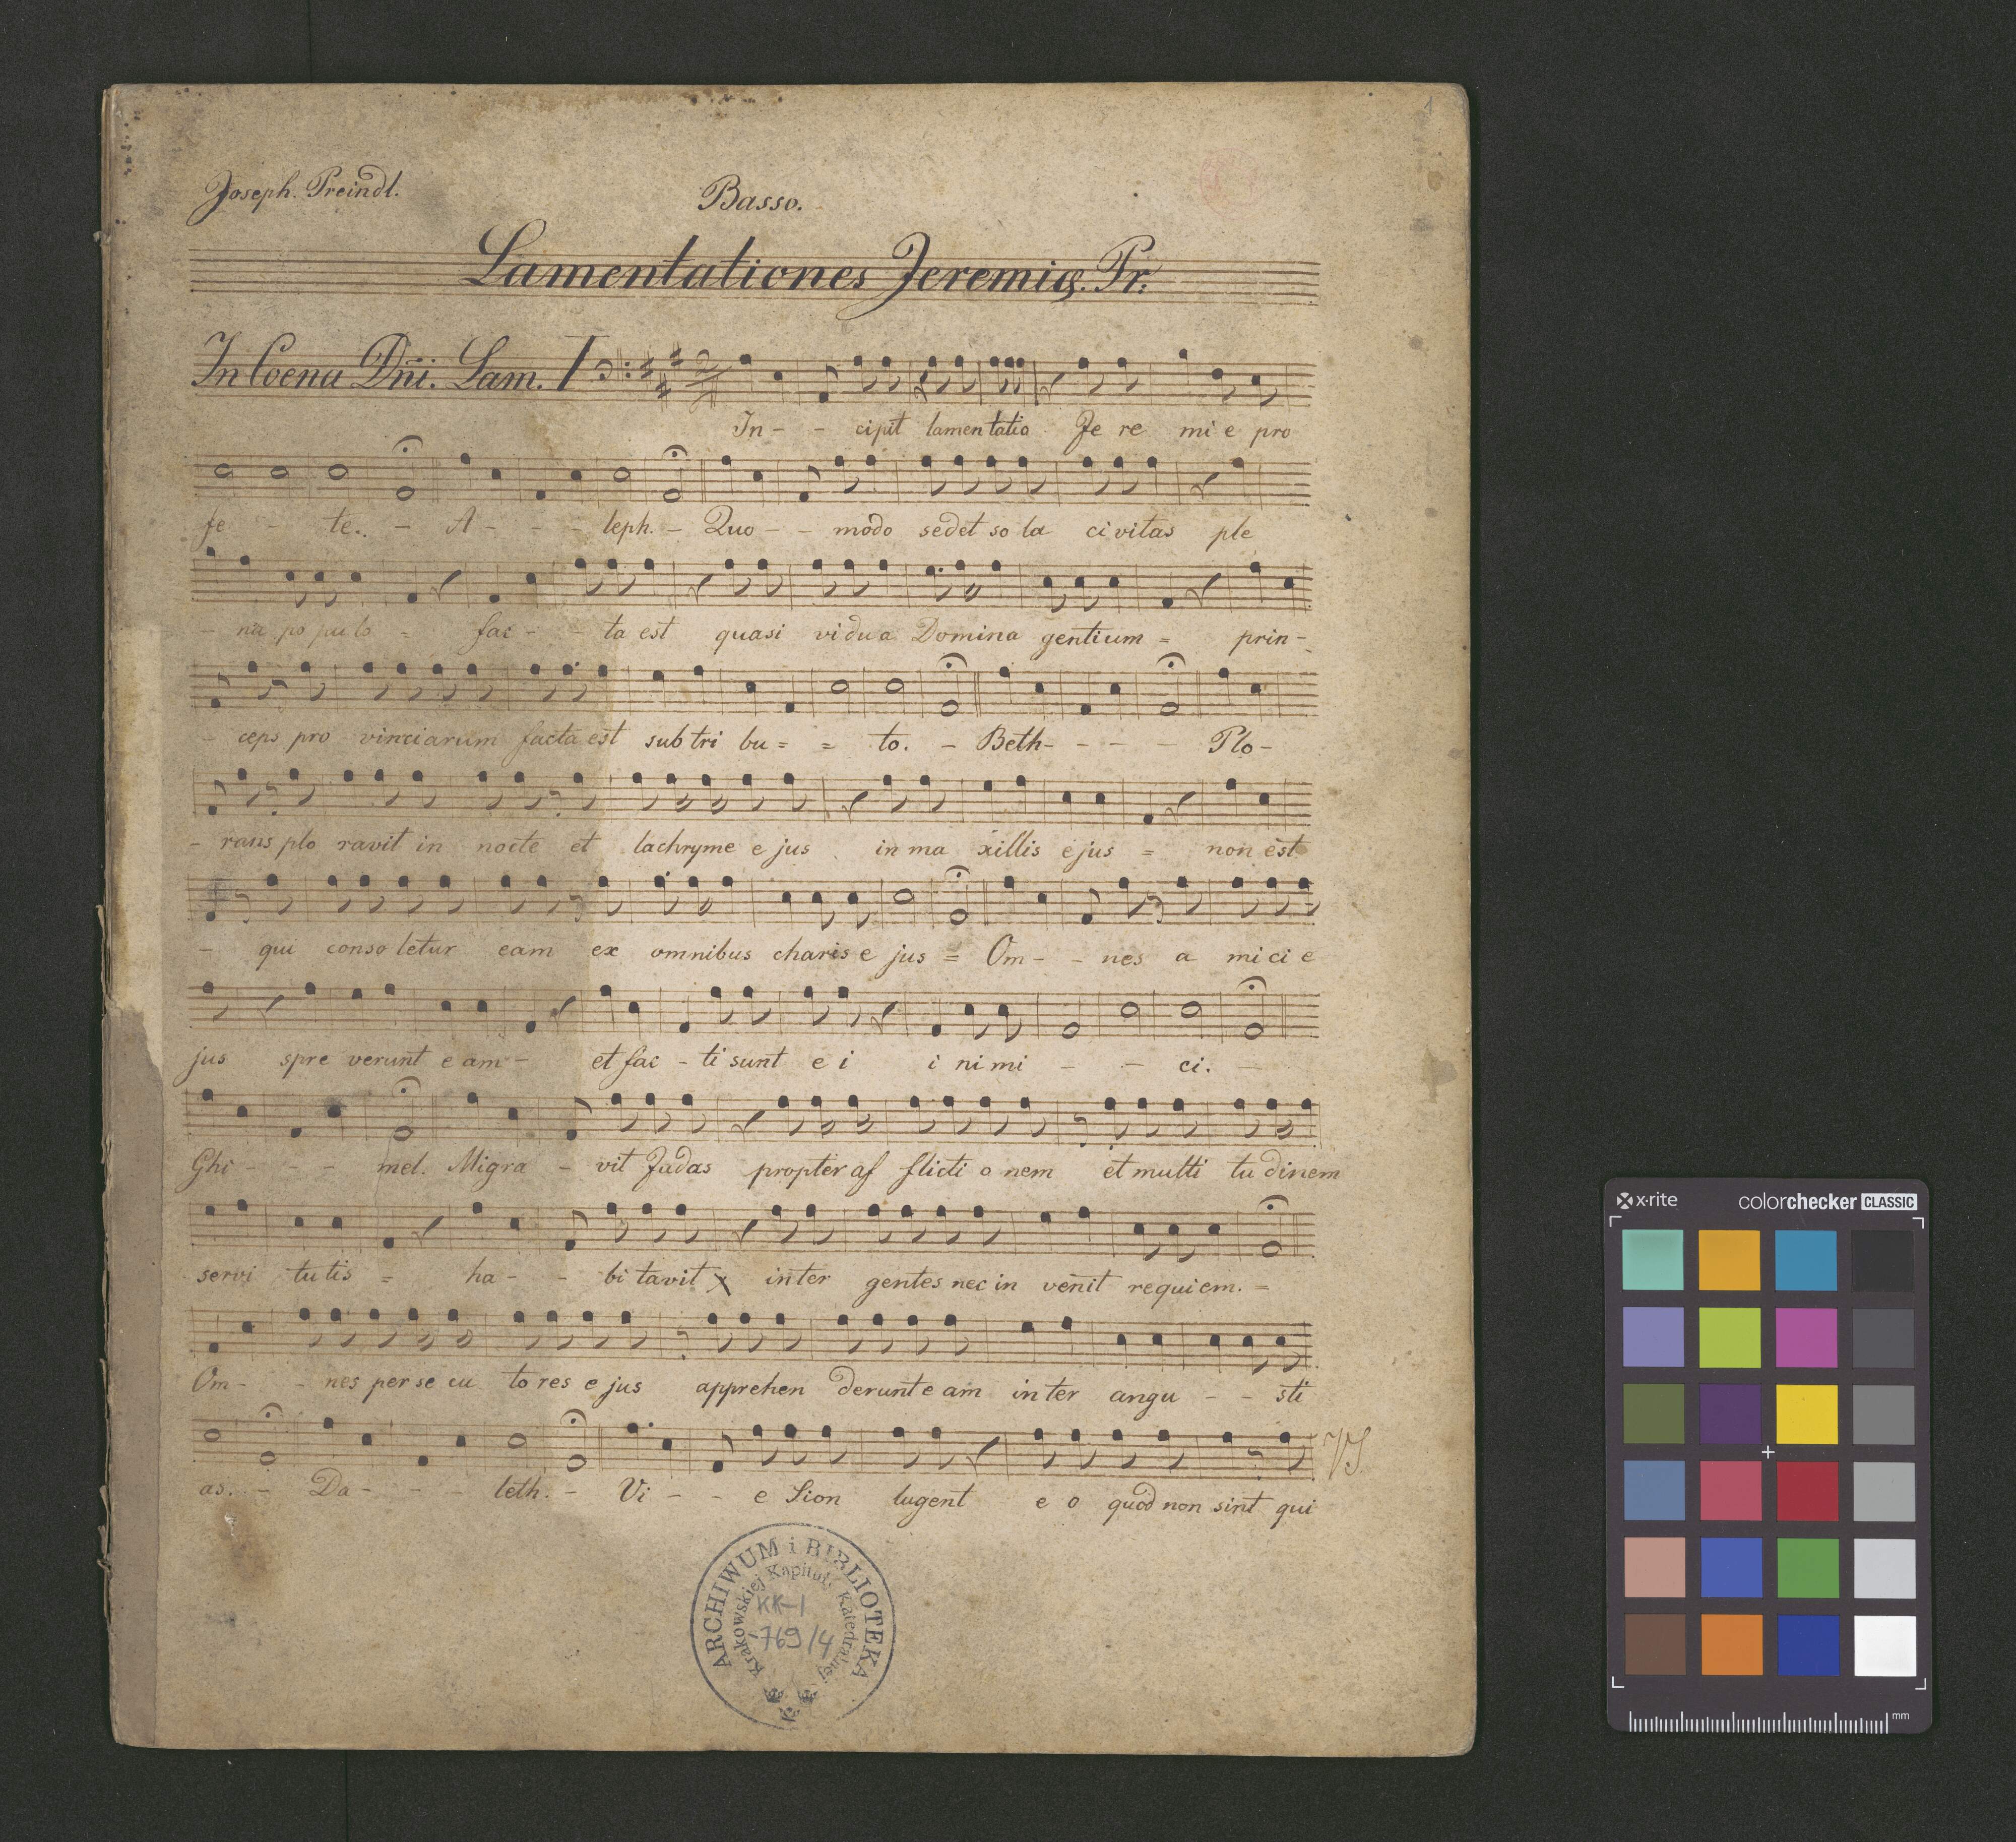 1
Joseph. Preindl.
Basso.
Lamentationes Jeremiæ. Pr:
In Coena Dni. Lam. I
In - - cipit lamentatio Je re mi e pro
fe - te. - A - - - leph. - Quo - - modo sedet so la ci vitas ple
- na po pulo = fac - - ta est quasi vi du a Domina gentium = prin -
- ceps pro vinciarum facta est sub tri bu = = to. - Beth - - - - Plo -
- rans plo ravit in nocte et lachryme e jus in ma xillis ejus = non est
- qui conso letur eam ex omnibus charis e jus = Om - - nes a mi ci e
jus spre verunt e am - et fac - ti sunt e i i ni mi - - ci. -
Ghi - - - mel. Migra - vit Judas propter af flicti o nem et multi tu dinem
servi tutis = ha - - bi tavit inter gentes nec in venit requiem. =
Om - - nes per se cu to res e jus apprehen derunt e am in ter angu - - sti
as. - Da - - - leth. - Vi - - e Sion lugent e o quod non sint qui
VS
ARCHIWUM i BIBLIOTEKA
Krakowskiej Kapituły Katedralnej
KK-I
769/4
x·rite colorchecker CLASSIC
mm